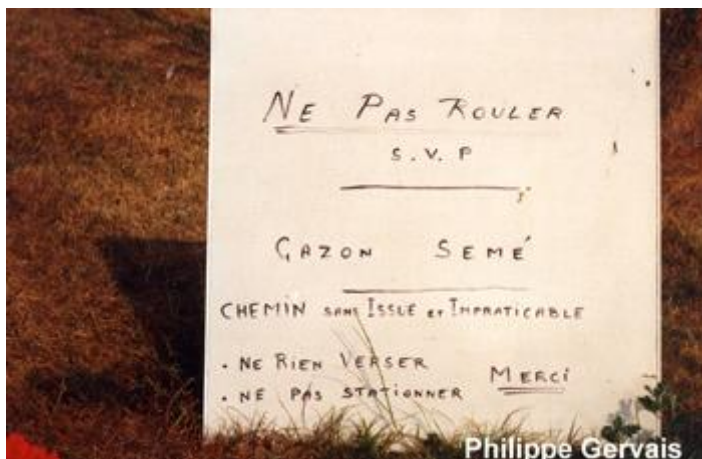 NE PAS ROULER
S.V.P
GAZON SEMÉ
CHEMIN SANS ISSUE ET IMPRATICABLE
• NE RIEN VERSER
• NE PAS STATIONNER MERCI
Philippe Gervais